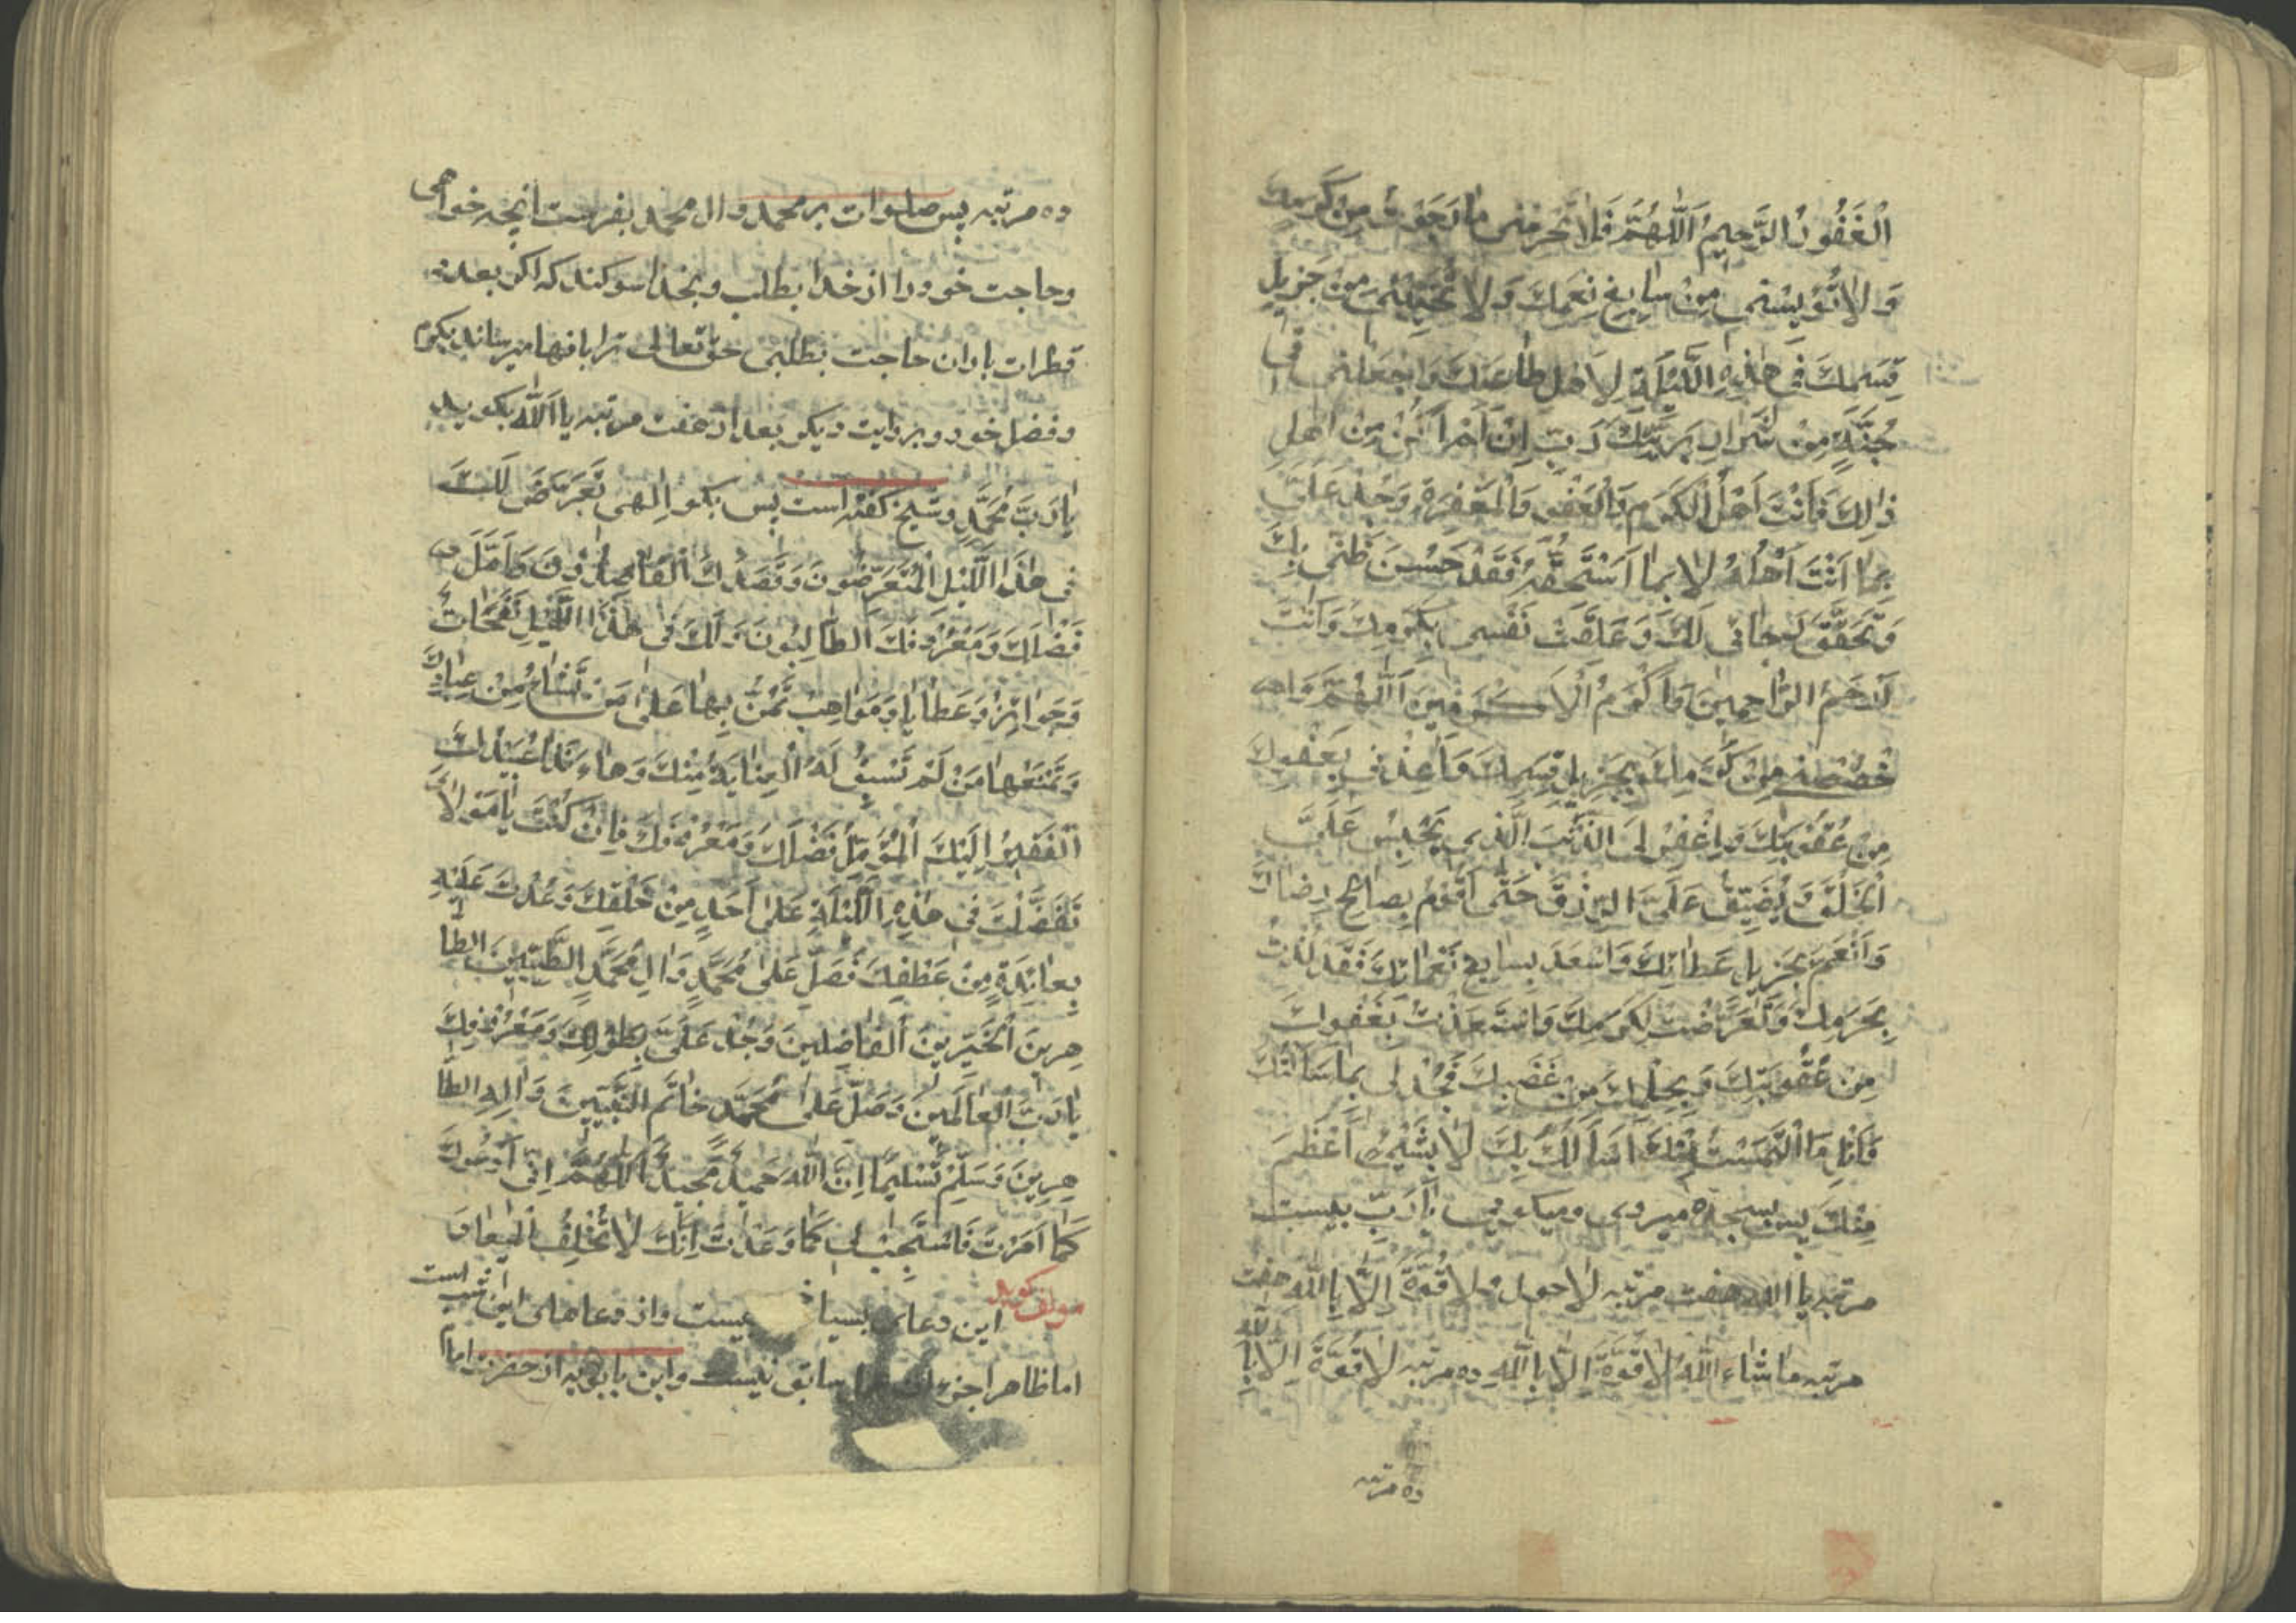 الْغَفُورُ الرَّحِيمُ اَللّٰهُمَّ فَلَا تَحْرِمْنِي مَا رَجَوْتُ مِنْ كَرَمِكَ
وَلَا تُؤْيِسْنِي مِنْ سَابِغِ نِعَمِكَ وَلَا تُخَيِّبْنِي مِنْ جَزِيلِ
قِسَمِكَ فِي هٰذِهِ اللَّيْلَةِ لِاَهْلِ طَاعَتِكَ وَاجْعَلْنِي فِي
جُنَّةٍ مِنْ شِرَارِ بَرِيَّتِكَ رَبِّ اِنْ لَمْ اَكُنْ مِنْ اَهْلِ
ذٰلِكَ فَاَنْتَ اَهْلُ الْكَرَمِ وَالْعَفْوِ وَالْمَغْفِرَةِ وَجُدْ عَلَيَّ
بِمَا اَنْتَ اَهْلُهُ لَا بِمَا اَسْتَحِقُّهُ فَقَدْ حَسُنَ ظَنِّي بِكَ
وَتَحَقَّقَ رَجَائِي لَكَ وَعَلِقَتْ نَفْسِي بِكَرَمِكَ وَاَنْتَ
اَرْحَمُ الرَّاحِمِينَ وَاَكْرَمُ الْاَكْرَمِينَ اَللّٰهُمَّ وَا
خْصُصْنِي مِنْ كَرَمِكَ بِجَزِيلِ قِسَمِكَ وَاَعِذْنِي بِعَفْوِكَ
مِنْ عُقُوبَتِكَ وَاغْفِرْ لِيَ الذَّنْبَ الَّذِي يَحْبِسُ عَلَيَّ
الْخُلُقَ وَيُضَيِّقُ عَلَيَّ الرِّزْقَ حَتّٰى اَقُومَ بِصَالِحِ رِضَاكَ
وَاَنْعَمَ بِجَزِيلِ عَطَائِكَ وَاَسْعَدَ بِسَابِغِ نَعْمَائِكَ فَقَدْ لُذْتُ
بِحَرَمِكَ وَتَعَرَّضْتُ لِكَرَمِكَ وَاسْتَعَذْتُ بِعَفْوِكَ
مِنْ عُقُوبَتِكَ وَبِحِلْمِكَ مِنْ غَضَبِكَ فَجُدْ لِي بِمَا سَاَلْتُكَ
وَاَنِلْ مَا الْتَمَسْتُ مِنْكَ اَسْاَلُكَ بِكَ لَا بِشَيْءٍ اَعْظَمَ
مِنْكَ پس بسجده میروی و میکویی یا رَبِّ بیست
مرتبه یا الله هفت مرتبه لاحول ولا قُوَّةَ اِلَّا بِاللّٰهِ هفت
مرتبه مَا شَاءَ اللّٰهُ لَا قُوَّةَ اِلَّا بِاللّٰهِ ده مرتبه لَا قُوَّةَ اِلَّا بِاللّٰهِ
ده مرتبه
ده مرتبه پس صلوات بر محمد و ال محمد بفرست انچه خواهی
و حاجت خود را از خدا بطلب و بخدا سوکند که اکر بعدد
قطرات باران حاجت بطلبی حق تعالی ترا بانها میرساند بکرم
و فضل خود و بروایت دیکر بعد از هفت مرتبه یا اَللّٰه بکوید
یَا رَبَّ مُحَمَّدٍ و شیخ کفته است پس بکو اِلٰهِی تَعَرَّضَ لَكَ
فِي هٰذَا اللَّيْلِ الْمُتَعَرِّضُونَ وَقَصَدَكَ الْقَاصِدُونَ وَاَمَّلَ
فَضْلَكَ وَمَعْرُوفَكَ الطَّالِبُونَ وَلَكَ فِي هٰذَا اللَّيْلِ نَفَحَاتٌ
وَجَوَائِزُ وَعَطَايَا وَمَوَاهِبُ تَمُنُّ بِهَا عَلٰى مَنْ تَشَاءُ مِنْ عِبَادِكَ
وَتَمْنَعُهَا مَنْ لَمْ تَسْبِقْ لَهُ الْعِنَايَةُ مِنْكَ وَهَا اَنَا ذَا عُبَيْدُكَ
الْفَقِيرُ اِلَيْكَ الْمُؤَمِّلُ فَضْلَكَ وَمَعْرُوفَكَ فَاِنْ كُنْتَ يَا مَوْلَايَ
تَفَضَّلْتَ فِي هٰذِهِ اللَّيْلَةِ عَلٰى اَحَدٍ مِنْ خَلْقِكَ وَعُدْتَ عَلَيْهِ
بِعَائِدَةٍ مِنْ عَطْفِكَ فَصَلِّ عَلٰى مُحَمَّدٍ وَاٰلِ مُحَمَّدٍ الطَّيِّبِينَ الطَّا
هِرِينَ الْخَيِّرِينَ الْفَاضِلِينَ وَجُدْ عَلَيَّ بِطَوْلِكَ وَمَعْرُوفِكَ
يَا رَبَّ الْعَالَمِينَ وَصَلَّى عَلٰى مُحَمَّدٍ خَاتَمِ النَّبِيِّينَ وَاٰلِهِ الطَّا
هِرِينَ وَسَلَّمَ تَسْلِيمًا اِنَّ اللّٰهَ حَمِيدٌ مَجِيدٌ اَللّٰهُمَّ اِنِّي اَدْعُوكَ
كَمَا اَمَرْتَ فَاسْتَجِبْ لِي كَمَا وَعَدْتَ اِنَّكَ لَا تُخْلِفُ الْمِيعَادَ
مولف کوید این دعای بسیار یست و از دعاهای این شب است
اما ظاهرا جزو سابق نیست و ابن بابویه از حضرت امام